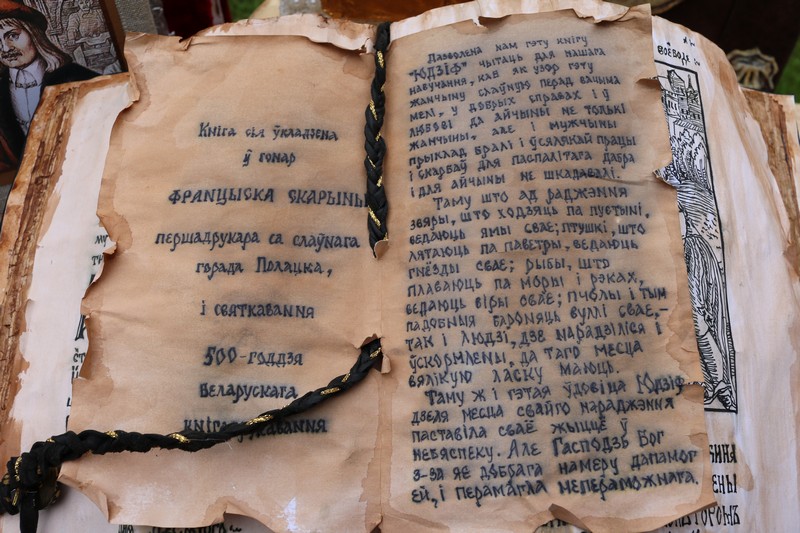 Кніга сія ўкладзена
ў гонар
ФРАНЦЫСКА СКАРЫНЫ
першадрукара са слаўнага
горада Полацка,
і святкавання
500-годдзя
Беларускага
кнігадрукавання
Дазволена нам гэту кнігу
"ЮДЗІФ" чытаць для нашага
навучання, каб як узор гэту
жанчыну слаўную перад вачыма
мелі, у добрых справах і ў
любові да айчыны не толькі
жанчыны, але і мужчыны
прыклад бралі і ўсялякай працы
і скарбаў для паспалітага дабра
і для айчыны не шкадавалі.
Таму што ад раджэння
звяры, што ходзяць па пустыні,
ведаюць ямы свае; птушкі, што
лятаюць па паветры, ведаюць
гнёзды свае; рыбы, што
плаваюць па моры і рэках,
ведаюць віры свае; пчолы і тым
падобныя бароняць вуллі свае,-
так і людзі, дзе нарадзіліся і
ўскормлены, да таго месца
вялікую ласку маюць.
Таму ж і гэтая ўдовіца Юдзіф
дзеля месца свайго нараджэння
паставіла сваё жыццё ў
небяспеку. Але Гасподзь Бог
з-за яе добрага намеру дапамог
ей, і перамагла непераможнага.
ВОЕВОДЕ